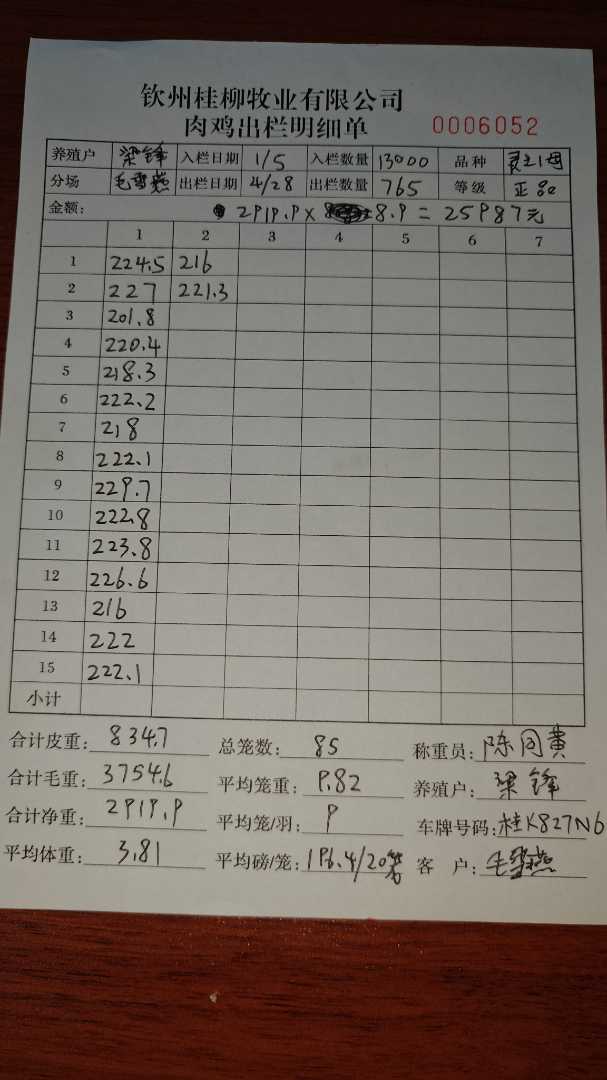 钦州桂柳牧业有限公司
肉鸡出栏明细单 0006052
养殖户 梁锋 入栏日期 1/5 入栏数量 13000 品种 灵之1母
分场 毛雪燕 出栏日期 4/28 出栏数量 765 等级 正品
金额: 2919.9 x 8.9 = 25987元
1 2 3 4 5 6 7
1 224.5 216
2 227 221.3
3 201.8
4 220.4
5 218.3
6 222.2
7 218
8 222.1
9 229.7
10 222.8
11 223.8
12 226.6
13 216
14 222
15 222.1
小计
合计皮重: 834.7 总笼数: 85 称重员: 陈同黄
合计毛重: 3754.6 平均笼重: 9.82 养殖户: 梁锋
合计净重: 2919.9 平均笼/羽: 9 车牌号码: 桂K827N6
平均体重: 3.81 平均磅/笼: 196.4/20 客 户: 毛雪燕